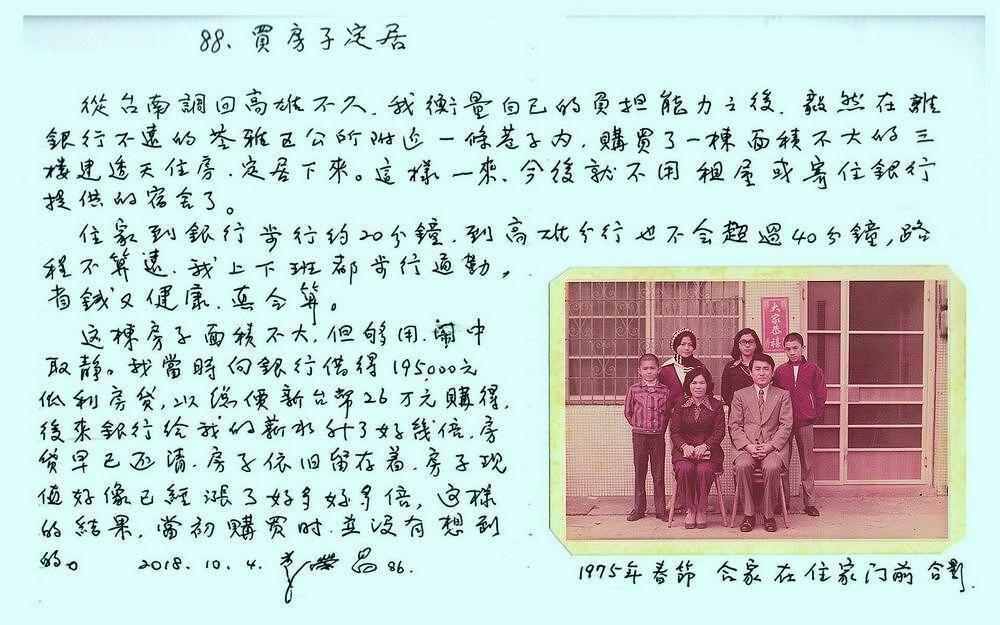 88、買房子定居
從台南調回高雄不久，我衡量自己的負担能力之後，毅然在離
銀行不遠的苓雅区公所附近一條巷子內，購買了一棟面積不大的三
樓建透天住房，定居下來。這樣一來，今後就不用租屋或寄住銀行
提供的宿舍了。
住家到銀行步行約20分鐘，到高雄分行也不会超過40分鐘，路
程不算遠，我上下班都步行通勤，
省錢又健康，真合算。
这棟房子面積不大，但够用，鬧中
取靜。我當時向銀行借得195,000元
低利房貸，以總價新台幣26万元購得，
後來銀行给我的薪水升了好幾倍，房
貸早已还清，房子依旧留存着，房子現
值好像已經漲了好多好多倍，这樣
的結果，當初購買时，並沒有想到
的。 2018.10.4. 昌 86.
大家恭禧
1975年春節 合家在住家门前合影.